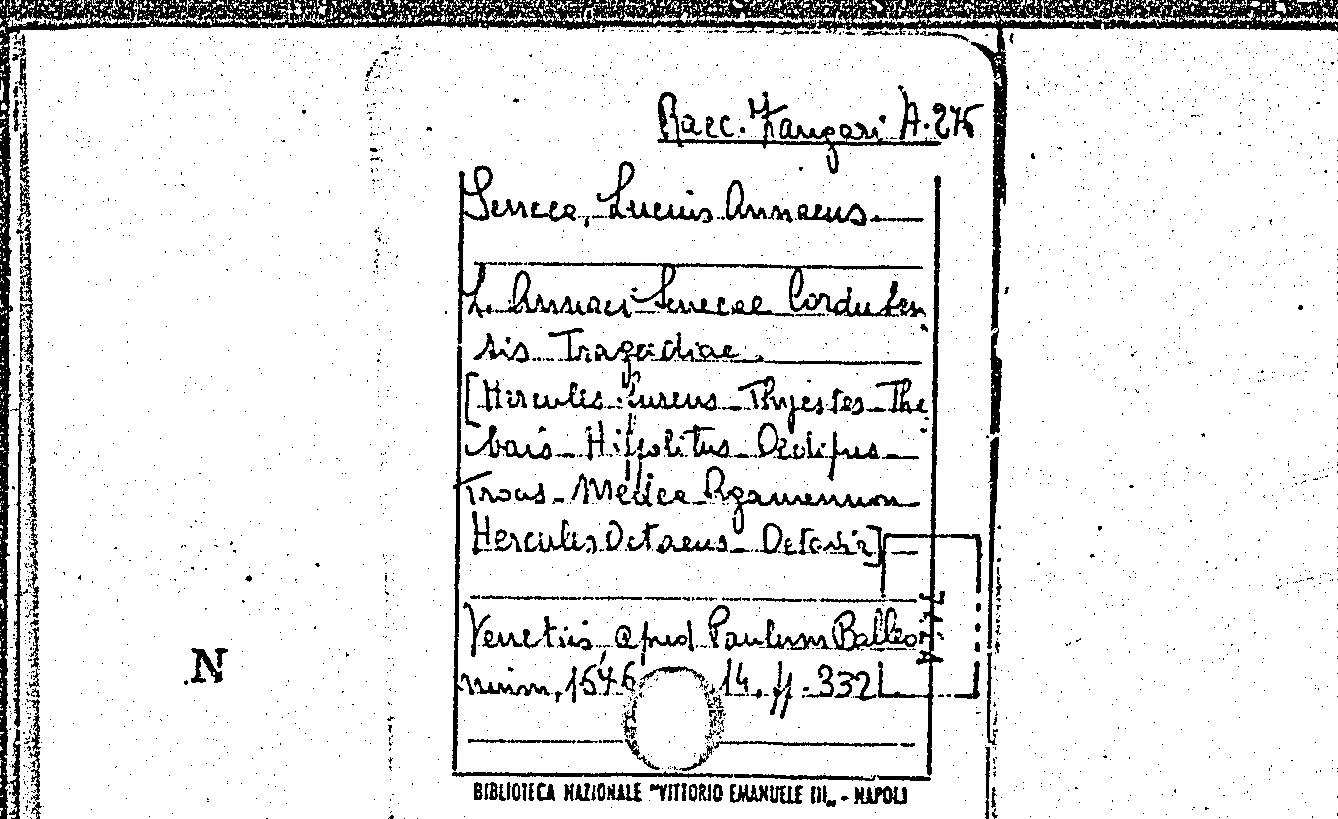 Racc. Zangari A. 275
Seneca, Lucius Annaeus.
L. Annaei Senecae Corduben
sis Tragoediae.
[Hercules furens_Thyestes_The
bais_Hippolitus_Oedipus_
Troas_Medea Agamemnon
Hercules Octaeus_Octavia]
Venetiis, apud Paulum Balleo
nium, 1676 14. ff. 332
N
BIBLIOTECA NAZIONALE "VITTORIO EMANUELE III„ - NAPOLI